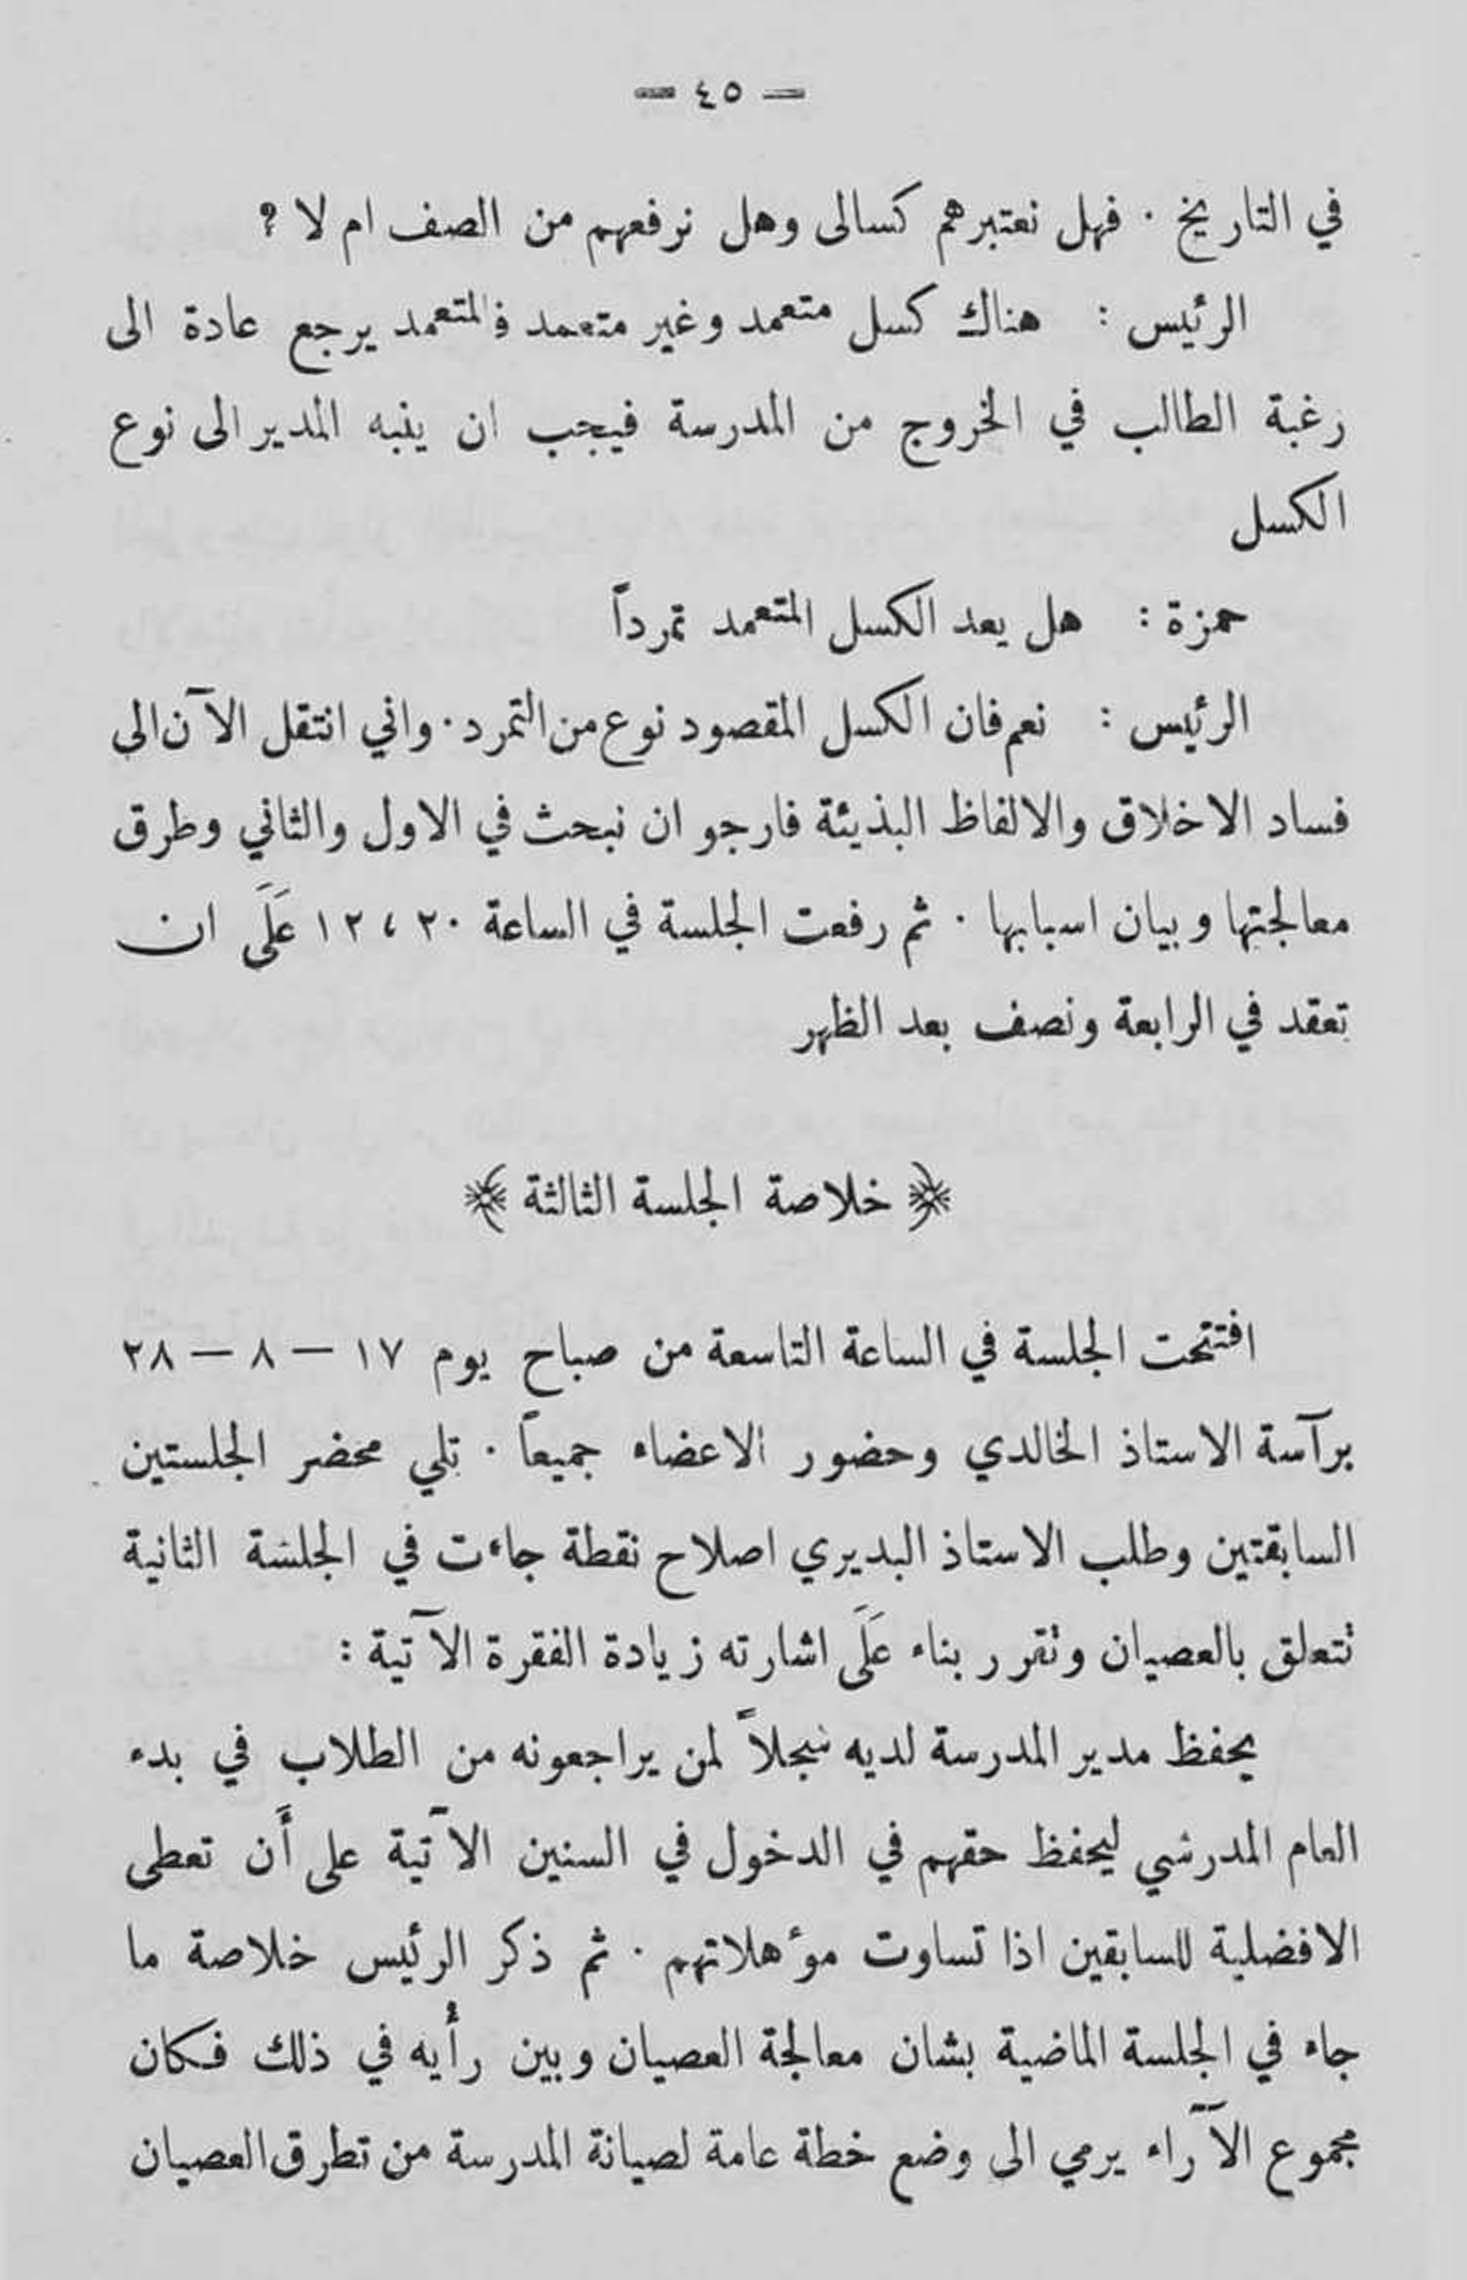 — ٤٥ —
في التاريخ . فهل نعتبرهم كسالى وهل نرفعهم من الصف ام لا ?
الرئيس : هناك كسل متعمد وغير متعمد فالمتعمد يرجع عادة الى
رغبة الطالب في الخروج من المدرسة فيجب ان ينبه المدير الى نوع
الكسل
حمزة : هل يعد الكسل المتعمد تمرداً
الرئيس : نعم فان الكسل المقصود نوع من التمرد . واني انتقل الآن الى
فساد الاخلاق والالفاظ البذيئة فارجو ان نبحث في الاول والثاني وطرق
معالجتها وبيان اسبابها . ثم رفعت الجلسة في الساعة ٢٠ ، ١٢ عَلَى ان
تعقد في الرابعة ونصف بعد الظهر
﴿ خلاصة الجلسة الثالثة ﴾
افتتحت الجلسة في الساعة التاسعة من صباح يوم ١٧ — ٨ — ٢٨
برآسة الاستاذ الخالدي وحضور الاعضاء جميعاً . تلي محضر الجلستين
السابقتين وطلب الاستاذ البديري اصلاح نقطة جاءت في الجلسة الثانية
تتعلق بالعصيان وتقرر بناء عَلَى اشارته زيادة الفقرة الآتية :
يحفظ مدير المدرسة لديه سجلاً لمن يراجعونه من الطلاب في بدء
العام المدرسي ليحفظ حقهم في الدخول في السنين الآتية على أَن تعطى
الافضلية للسابقين اذا تساوت مؤهلاتهم . ثم ذكر الرئيس خلاصة ما
جاء في الجلسة الماضية بشان معالجة العصيان وبين رأيه في ذلك فكان
مجموع الآراء يرمي الى وضع خطة عامة لصيانة المدرسة من تطرق العصيان